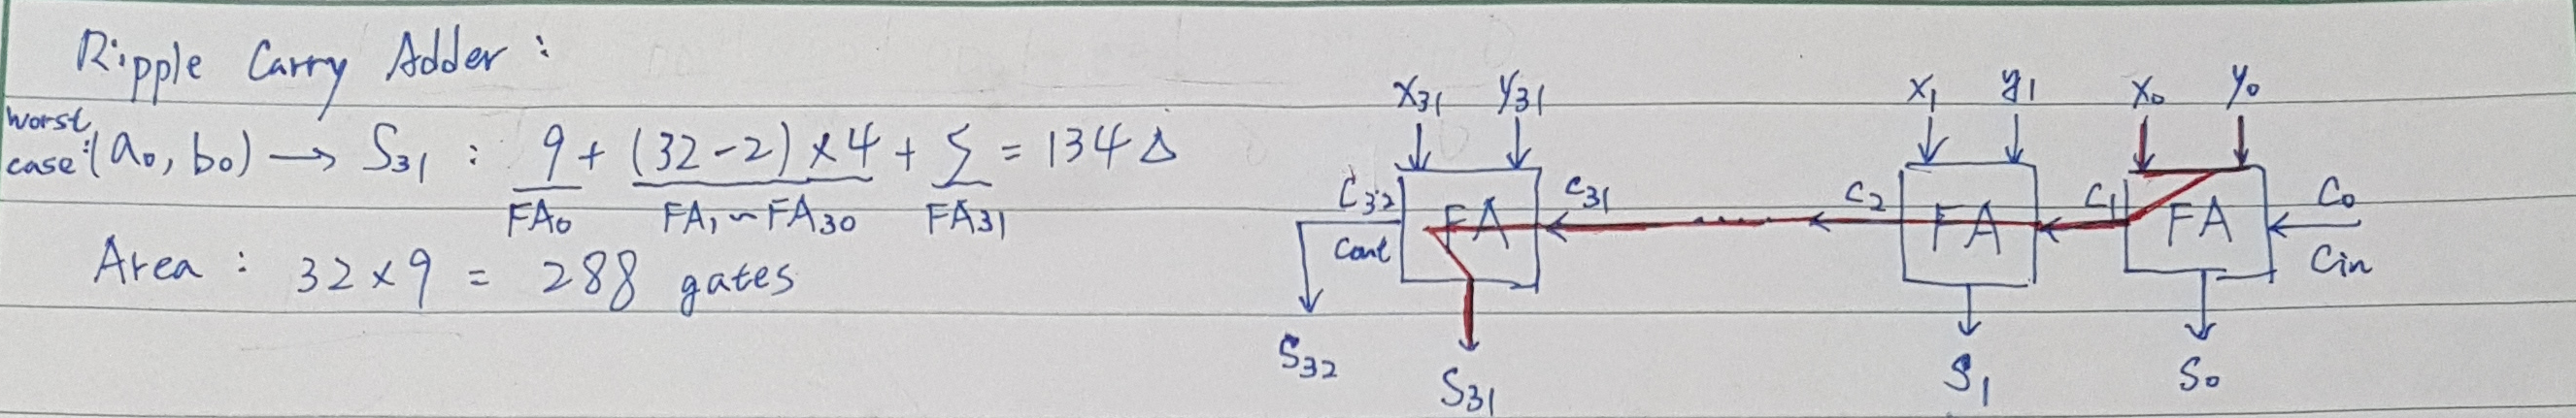 Ripple Carry Adder :
worst case: (a₀, b₀) → S₃₁ : 9 + (32-2) × 4 + 5 = 134 Δ
FA₀ FA₁ ~ FA₃₀ FA₃₁
Area : 32 × 9 = 288 gates
X₃₁ Y₃₁ X₁ y₁ X₀ Y₀
C₃₂ FA C₃₁ C₂ FA C₁ FA C₀
Cout Cin
S₃₂ S₃₁ S₁ S₀